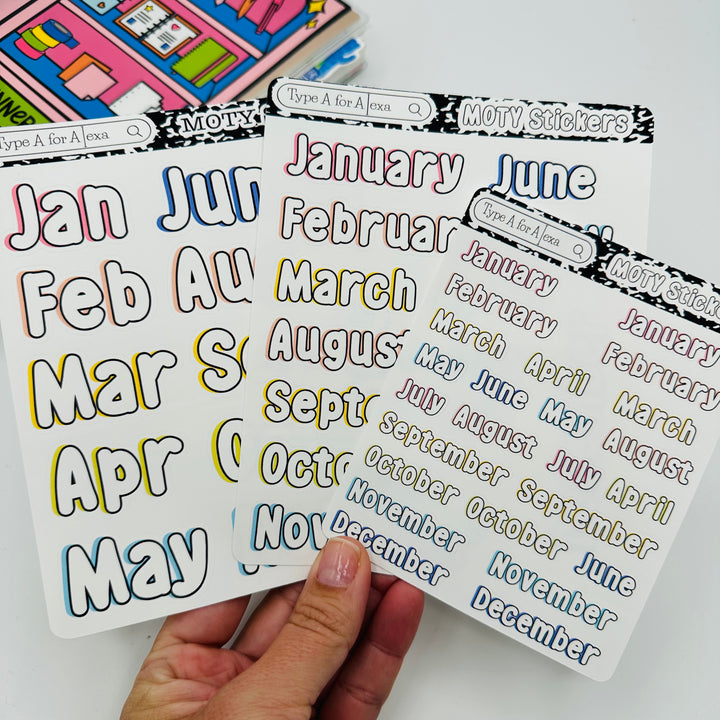 Type A for A|exa MOTY
Jan Jun
Feb Au
Mar Se
Apr
May
Type A for A|exa MOTY Stickers
January June
Februar
March
Augus
Septe
Octo
Nov
Type A for A|exa MOTY Sticke
January January
February February
March April March
May June May August
July August July April
September September
October October June
November November
December December